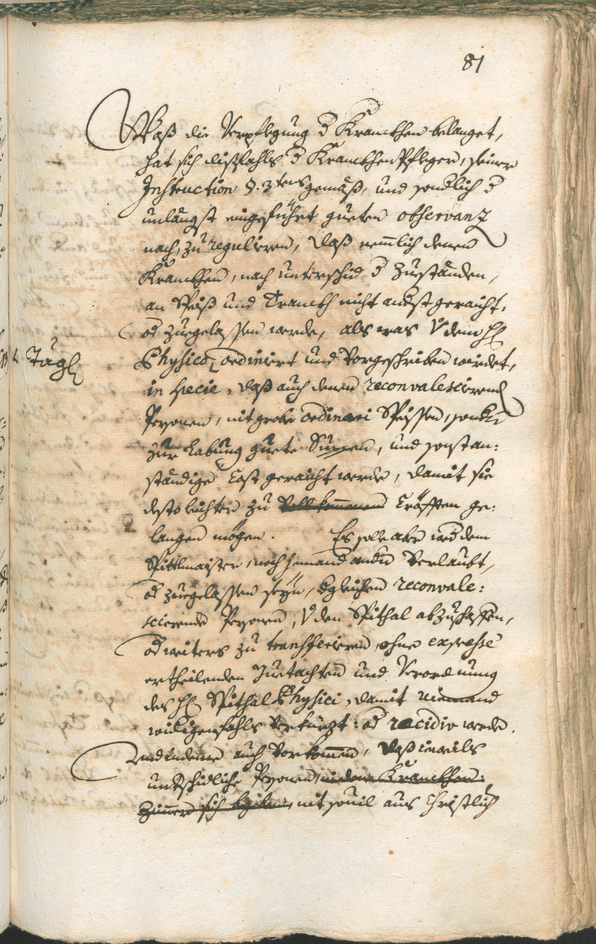 81
Waß die Verpflegung d Krankhen belanget,
hat sich dißfahls d KrankhenPfleger, seiner
Instruction §. 3tens gemäß, und sonderlich d
unlängst eingeführt gueten observanz
nach, zu reguliren, daß nemmlich denen
Krankhen, nach unterschid d Zueständen,
an Speiß und Trankh nicht andst geraicht,
od zuegelassen werde, als was v dem H
Physico ordinirt und vorgeschriben würdet,
Tägl
in specie, daß auch denen reconvalescirend
Persohnen, mit grobe ordinari Speisen, sond
zur Labung guete Suppen, und sonst an-
ständige Cost geraicht werde, damit sie
desto leichter zu vollkommenen Cräfften ge-
langen mögen. Es solle aber wed dem
Spittlmaister, noch jemand andn verlaubt,
od zuegelassen seyn, dgleichen reconvale-
scierende Persohnen, v dem Spithal abzuschaffen,
od weiters zu transferieren, ohne expresse
ertheilenden Guetachten und Verordnung
des H Spithal Physici, damit niemand
widigenfahls verkürzt od recidiv werde.
Und indeme auch vorkommen, daß
untschidliche Persohnen, in dem Krankhen-
Zimmer sich, mit sovil aus Christlich